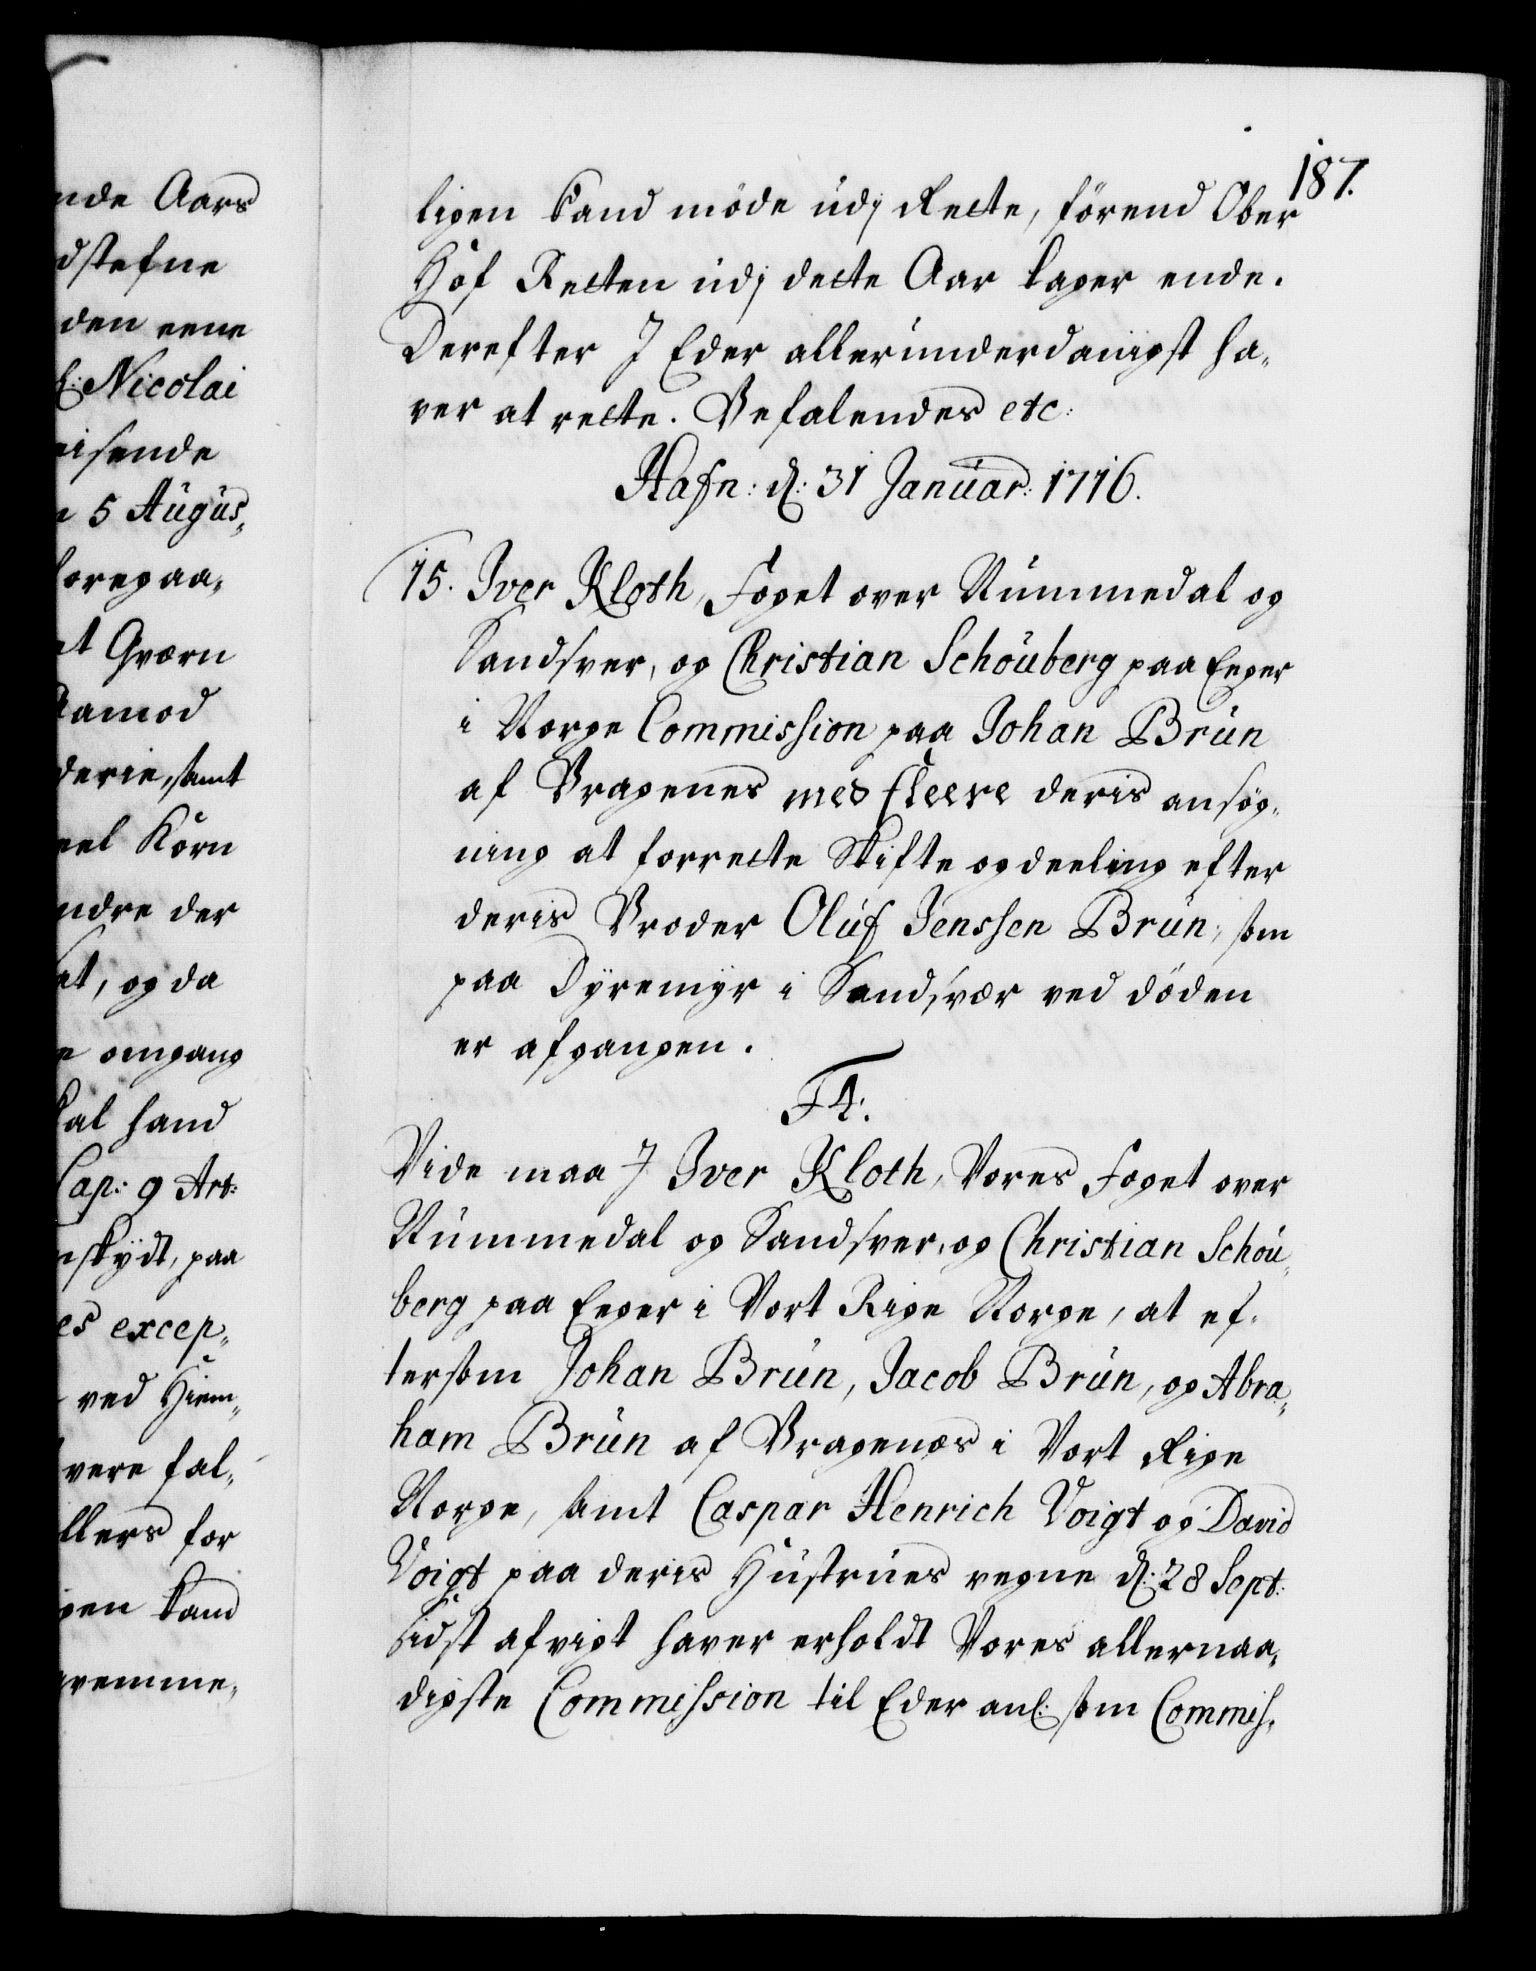 nde Aars
dstefne
den eene
Nicolai
eisende
5 Augus„
foregaa„
at Qværn
derie, samt
eel Korn
ndre der
et, og da
omgang
Cap: 9 Art:
paa
es excep„
ved Hiem„
være fal„
llers for
gen kand
187.
ligen kand møde udj Rette, förend Ober
Hof Retten udj dette Aar tager ende.
Derefter I Eder allerunderdanigst ha„
ver at rette. Befalendes etc:
Hafn: d: 31 Januar: 1716.
15. Iver Kloth, Foget over Nummedal og
Sandsver, og Christian Schouberg paa Eeger
i Norge Commission paa Johan Brun
af Bragenes med fleere deris ansøg„
ning at forrette Skifte og deeling efter
deris Broder Oluf Jenssen Brun, som
paa Dyremyr i Sandsvær ved döden
er afgangen.
F4:
Vide maa I Iver Kloth, Vores Foget over
Nummedal og Sandsver, og Christian Schou„
berg paa Eeger i Vort Rige Norge, at ef„
tersom Johan Brun, Jacob Brun, og Abra„
ham Brun af Bragenæs i Vort Rige
Norge, samt Caspar Henrich Voigt og David
Voigt paa deris Hustrues vegne d: 28 Sept:
sidst afvigt haver erholdt Vores allernaa„
digste Commission til Eder anl: som Commis„